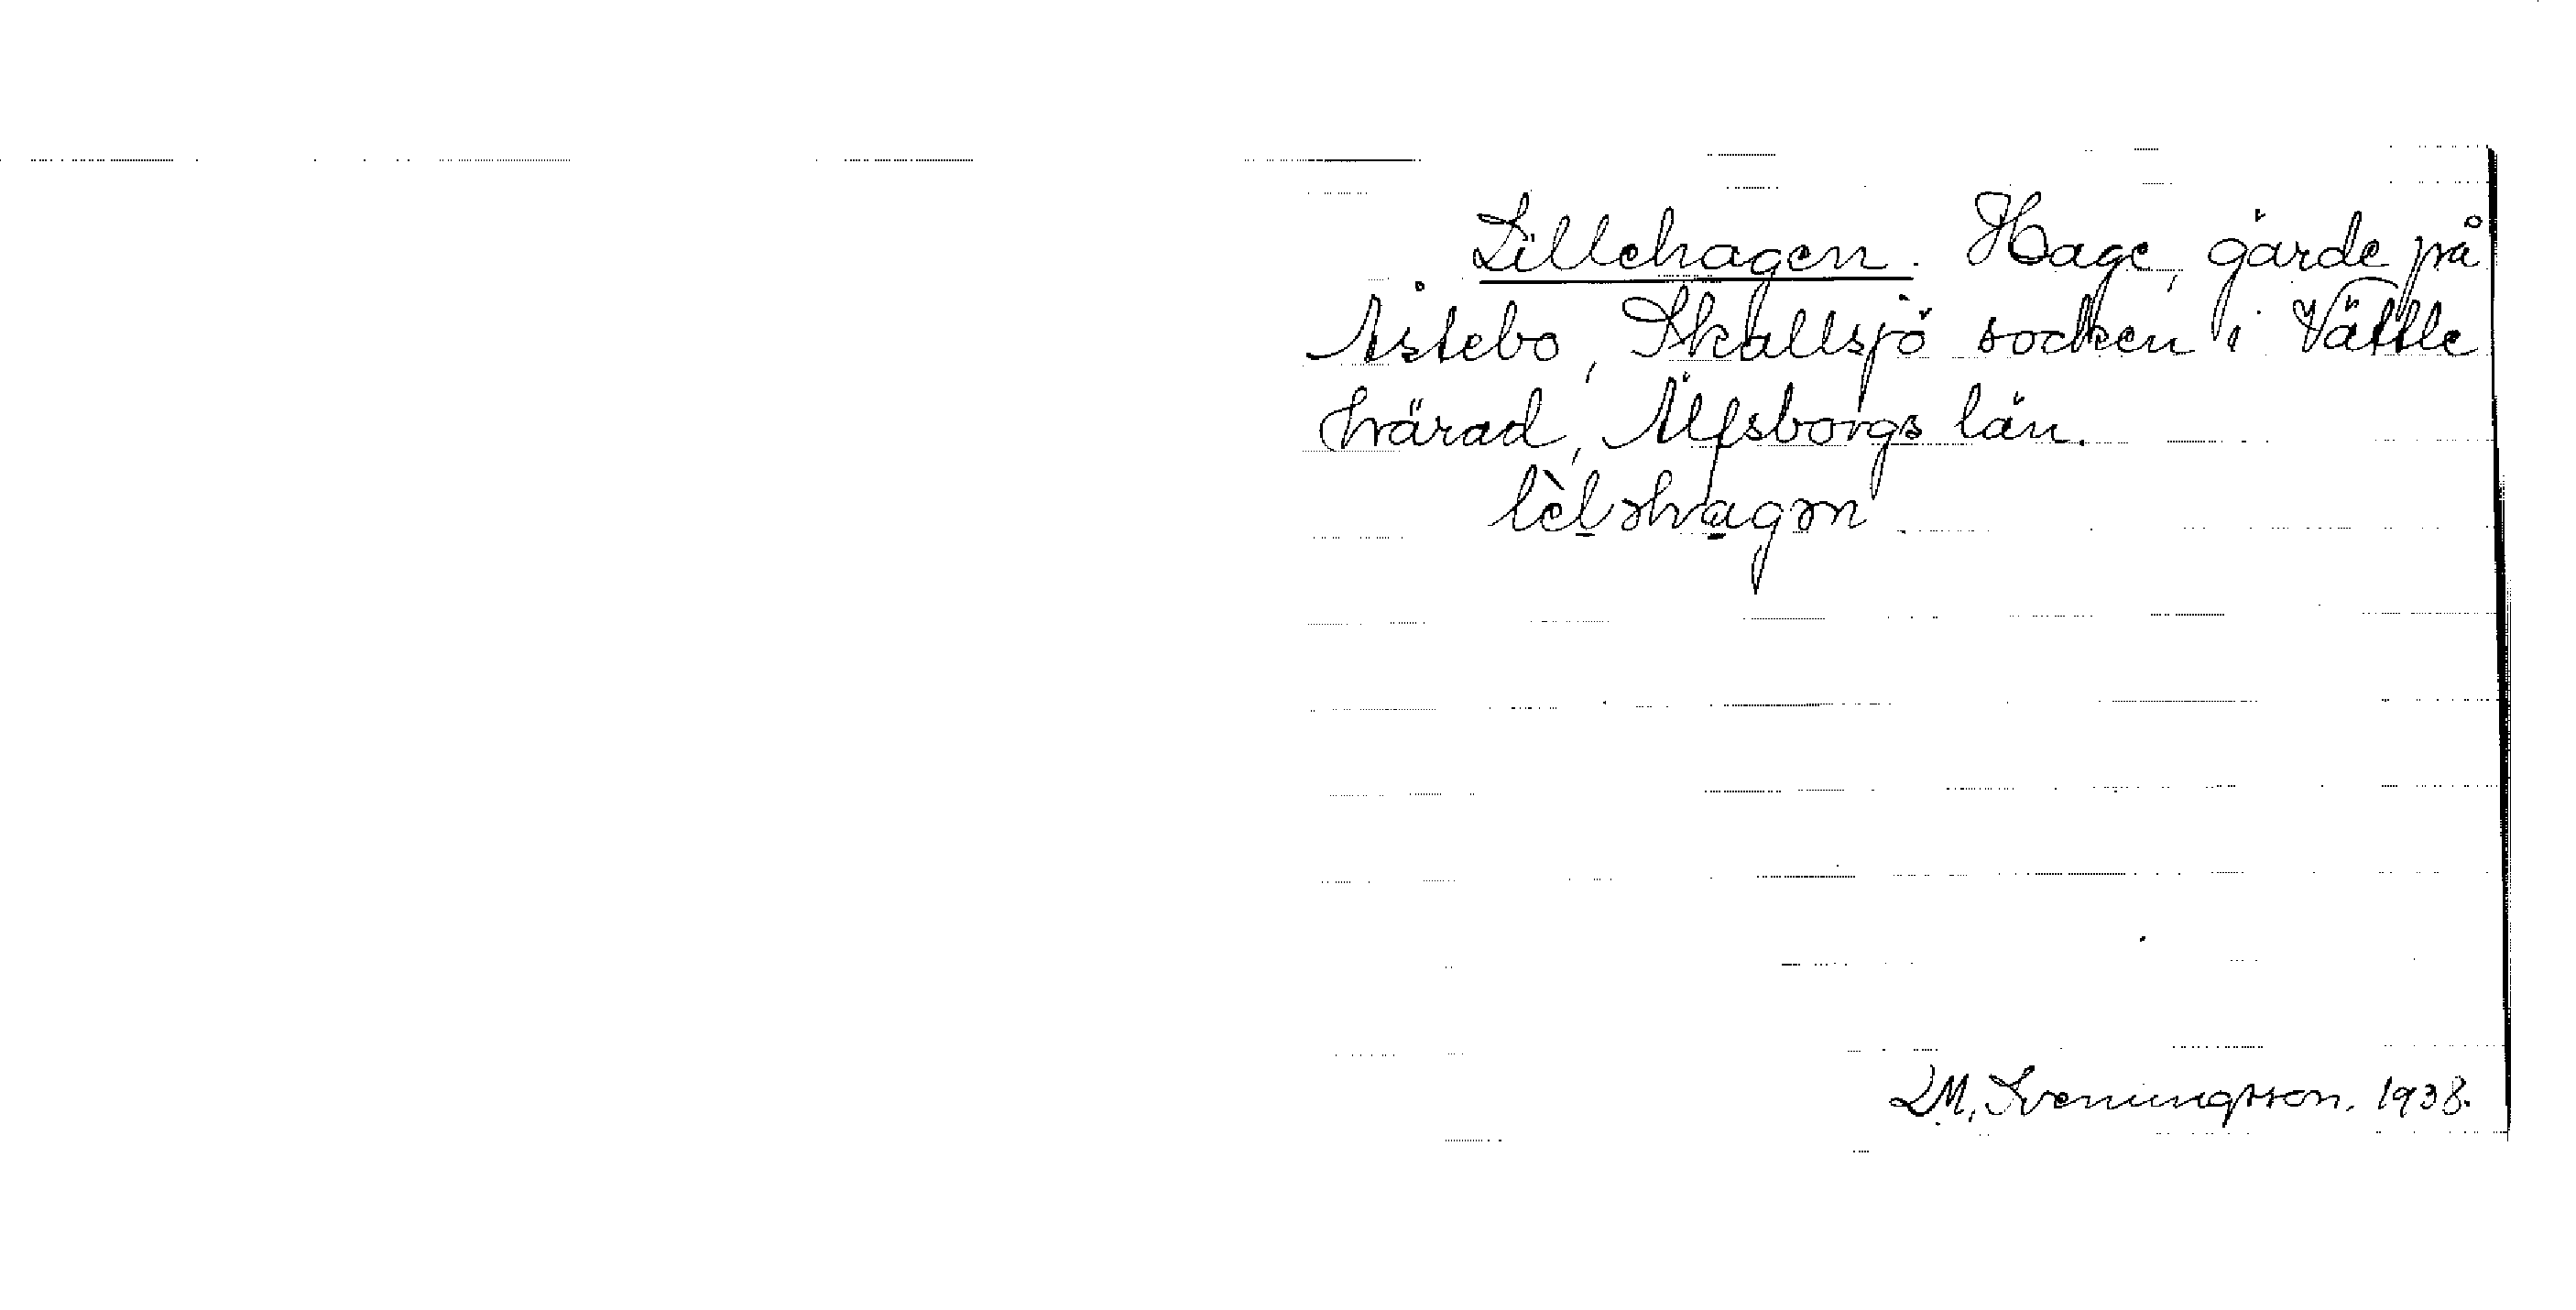 Lillehagen. Hage, gärde på
Åstebo, Skallsjö socken i Vättle
härad, Älfsborgs län.
lèləhagən
LM. Sveningsson. 1938.